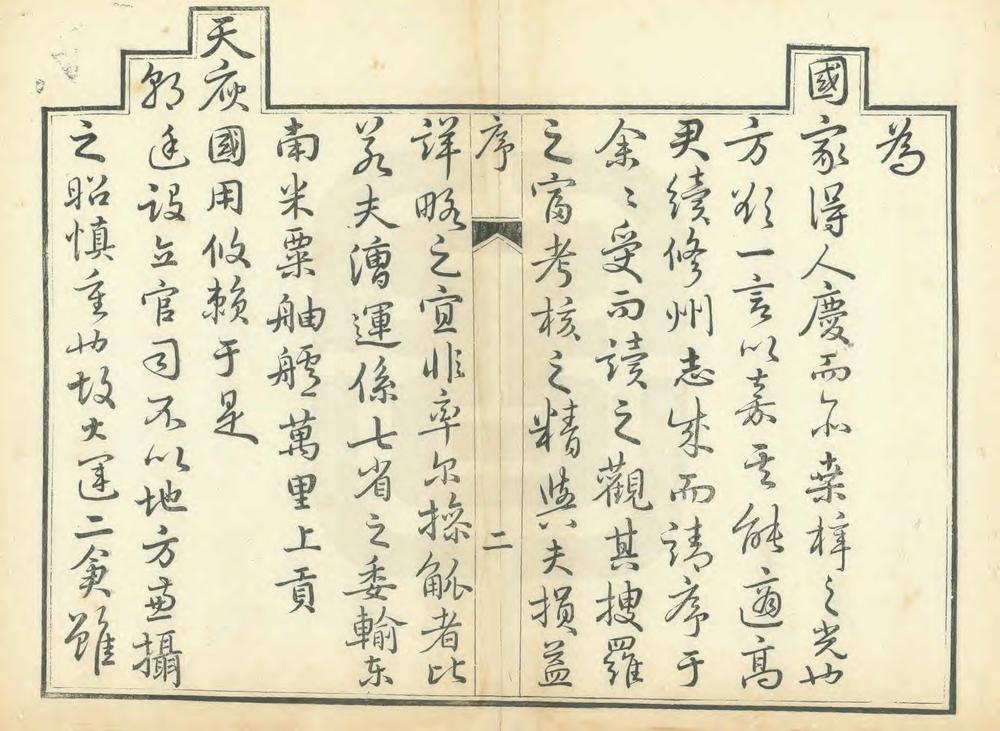 為
國家得人慶而亦桒梓之光也
方欲一言以嘉其能適高
尹續修州志成而請序于
余〻受而讀之觀其搜羅
之富考核之精與夫損益
序
二
詳略之宜非率尔操觚者比
若夫漕運係七省之委輸东
南米粟舳艫萬里上貢
天庾國用攸賴于是
朝廷設立官司不以地方兼攝
之昭慎重也故大運二僉雖